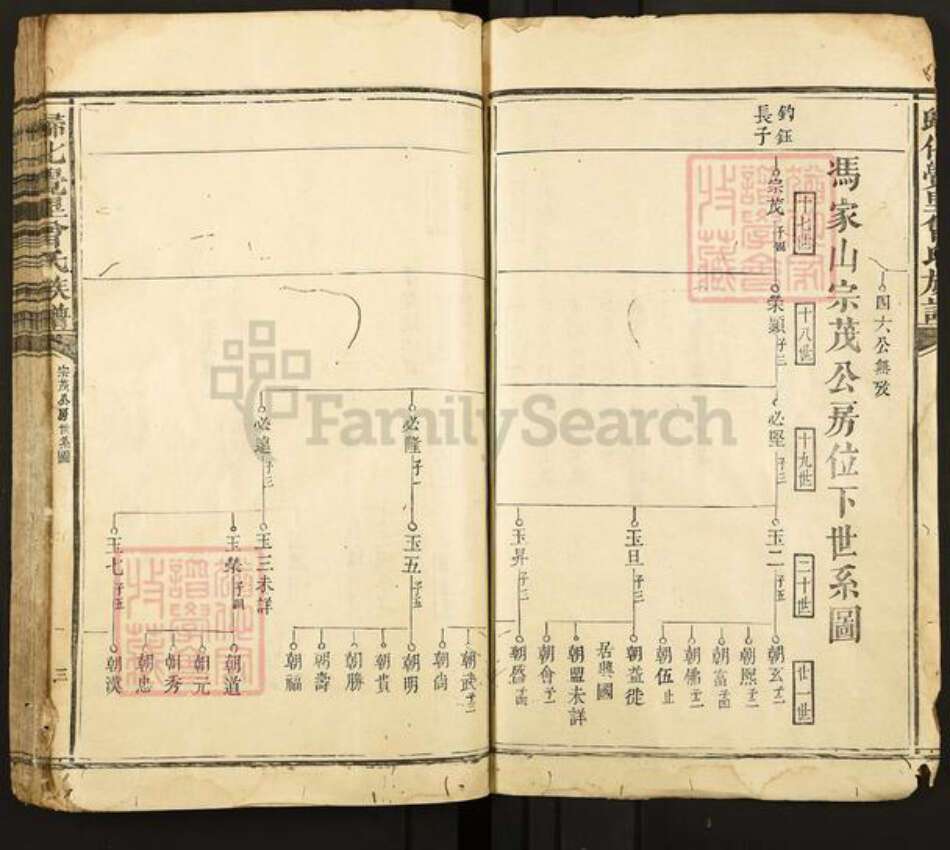 四六公無攷
馮家山宗茂公房位下世系圖
十七世
十八世
十九世
二十世
廿一世
鈞鈺
長子
宗茂 子四
榮顯 子三
必堅 子三
玉二 子五
朝玄 子二
朝熙 子二
朝富 子四
朝儒 子二
朝伍 止
玉旦 子三
朝益徙
居興國
朝盟未詳
朝會 子一
玉昇 子三
朝盛 子四
朝武 子二
朝尚
必隆 子一
玉五 子五
朝明
朝貴
朝勝
朝壽
朝福
必遠 子三
玉三未詳
玉榮 子四
朝道
朝元
朝秀
朝忠
玉七 子五
朝漢
歸化覺里曾氏族譜
宗茂公房世系圖
三
FamilySearch